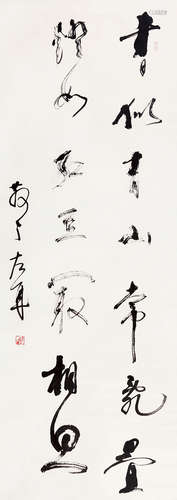 書似青山常亂疊
燈如紅豆最相思
散之左耳